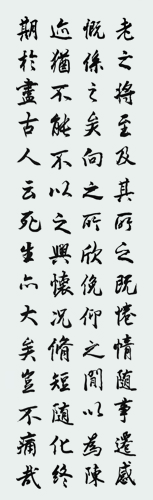 老之將至及其所之既惓情隨事遷感
慨係之矣向之所欣俛仰之閒以為陳
迹猶不能不以之興懷况脩短隨化終
期於盡古人云死生亦大矣豈不痛哉